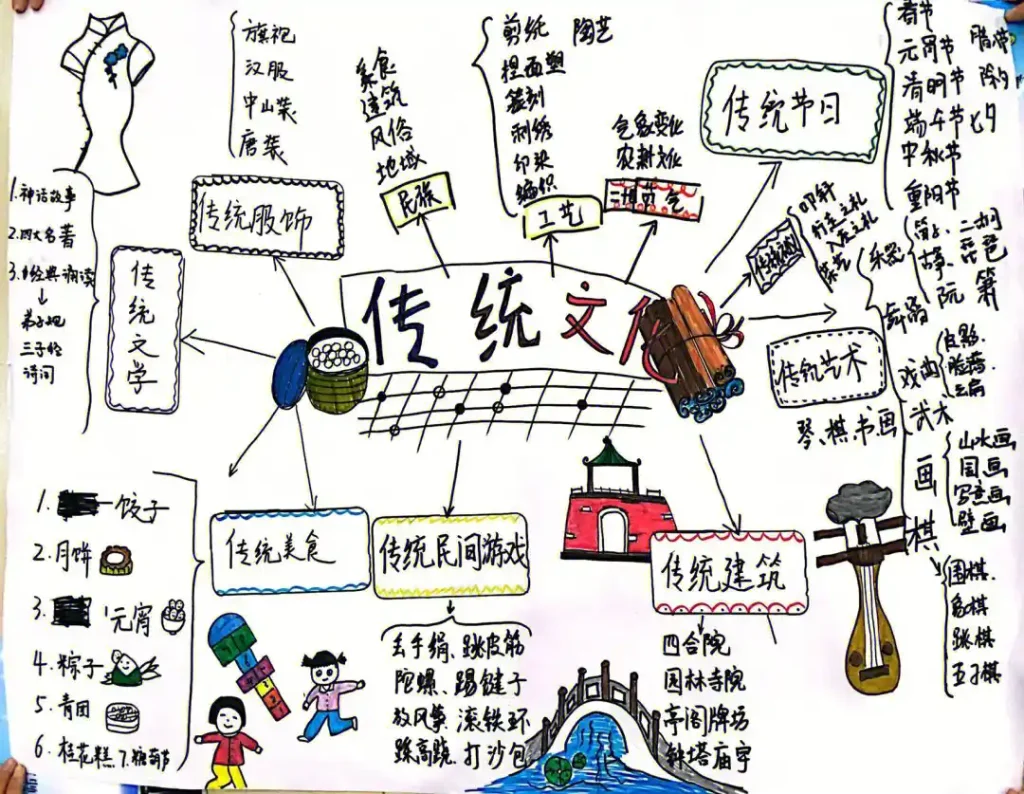 传统文化
传统服饰
旗袍
汉服
中山装
唐装
民族
美食
建筑
风俗
地域
工艺
剪纸 陶艺
捏面塑
篆刻
刺绣
印染
编织
气象变化
农耕文化
传统节日
春节
元宵节 腊八节
清明节 除夕
端午节 七夕
中秋节
重阳节
传统文学
1.神话故事
2.四大名著
3.经典诵读
弟子规
三字经
诗词
传统艺术
琴、棋、书、画
乐器
二胡
琵琶
阮 箫
舞蹈
戏曲
脸谱
武术
画
山水画
国画
写意画
壁画
棋
围棋
象棋
跳棋
五子棋
传统美食
1. 饺子
2.月饼
3. 元宵
4.粽子
5.青团
6.桂花糕 7.糖葫芦
传统民间游戏
丢手绢、跳皮筋
陀螺、踢毽子
放风筝、滚铁环
踩高跷、打沙包
传统建筑
四合院
园林寺院
亭阁牌坊